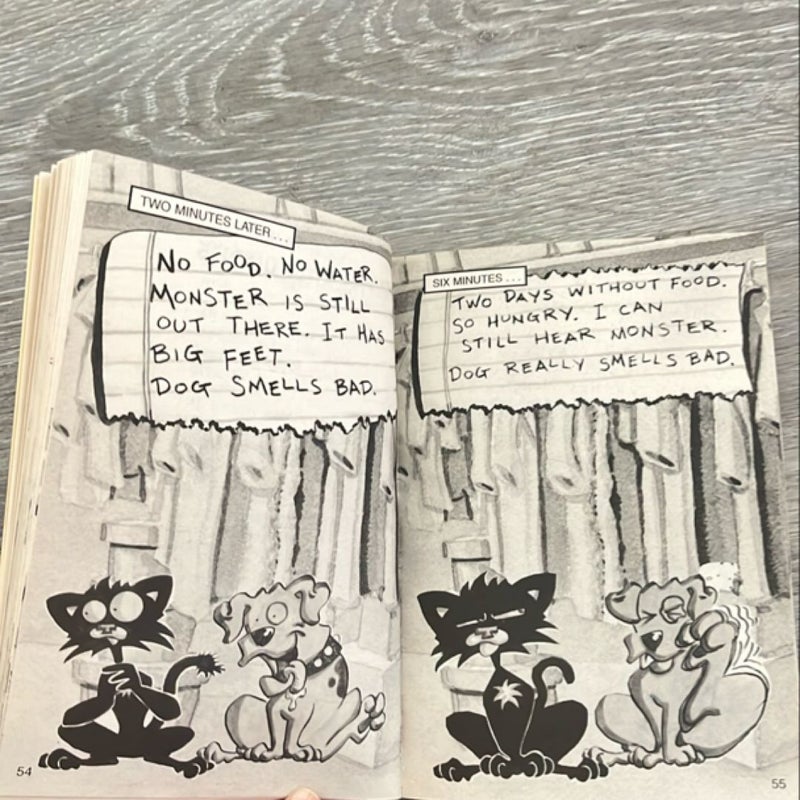 TWO MINUTES LATER...
NO FOOD. NO WATER.
MONSTER IS STILL
OUT THERE. IT HAS
BIG FEET.
DOG SMELLS BAD.
54
SIX MINUTES...
TWO DAYS WITHOUT FOOD.
SO HUNGRY. I CAN
STILL HEAR MONSTER.
DOG REALLY SMELLS BAD.
55